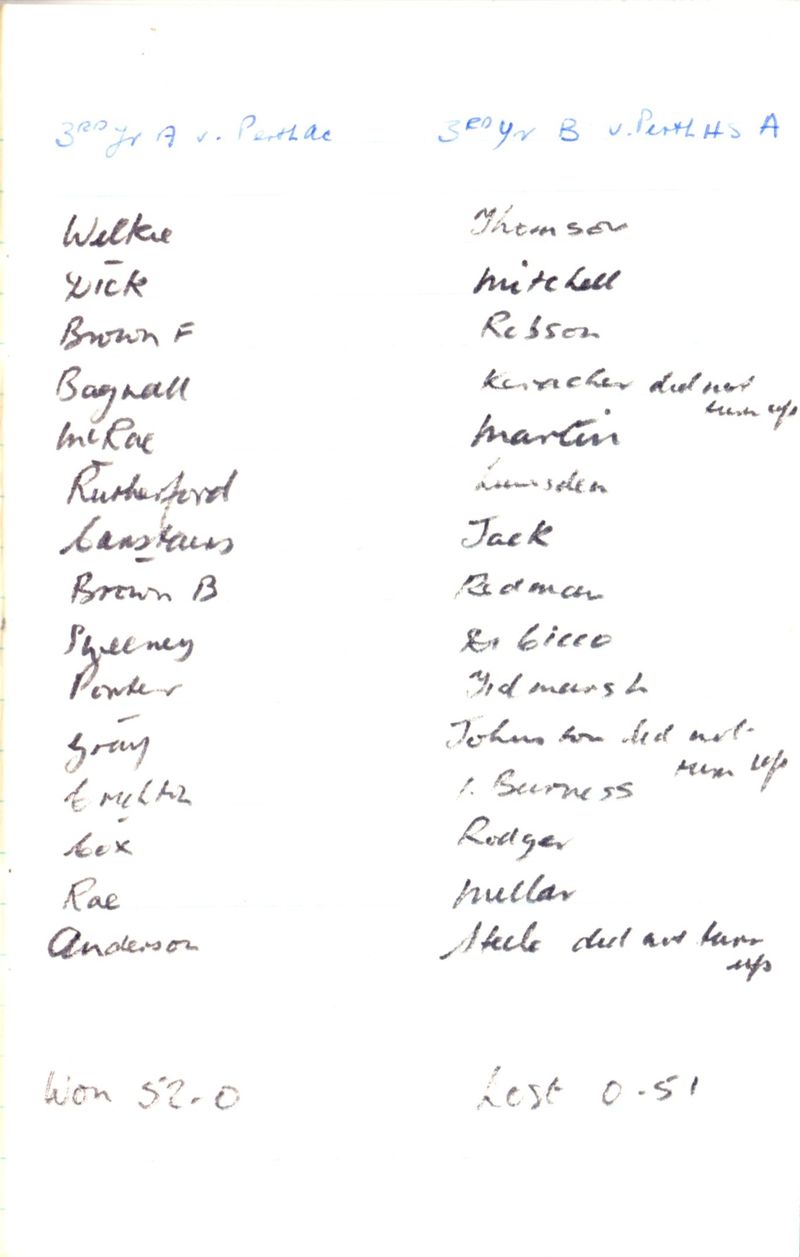 3RD Yr A v. Perth Ac
Wilkie
Dick
Brown F
Bagnall
McRae
Rutherford
Carstairs
Brown B
Sweeney
Porter
Gray
Crichton
Cox
Rae
Anderson
Won 52-0
3RD Yr B v. Perth HS A
Thomson
Mitchell
Robson
Keracher did not
turn up
Martin
Lumsden
Jack
Redman
Di Cicco
Tidmarsh
Johnston did not
turn up
Burness
Rodger
Millar
Steele did not turn
up
Lost 0-51